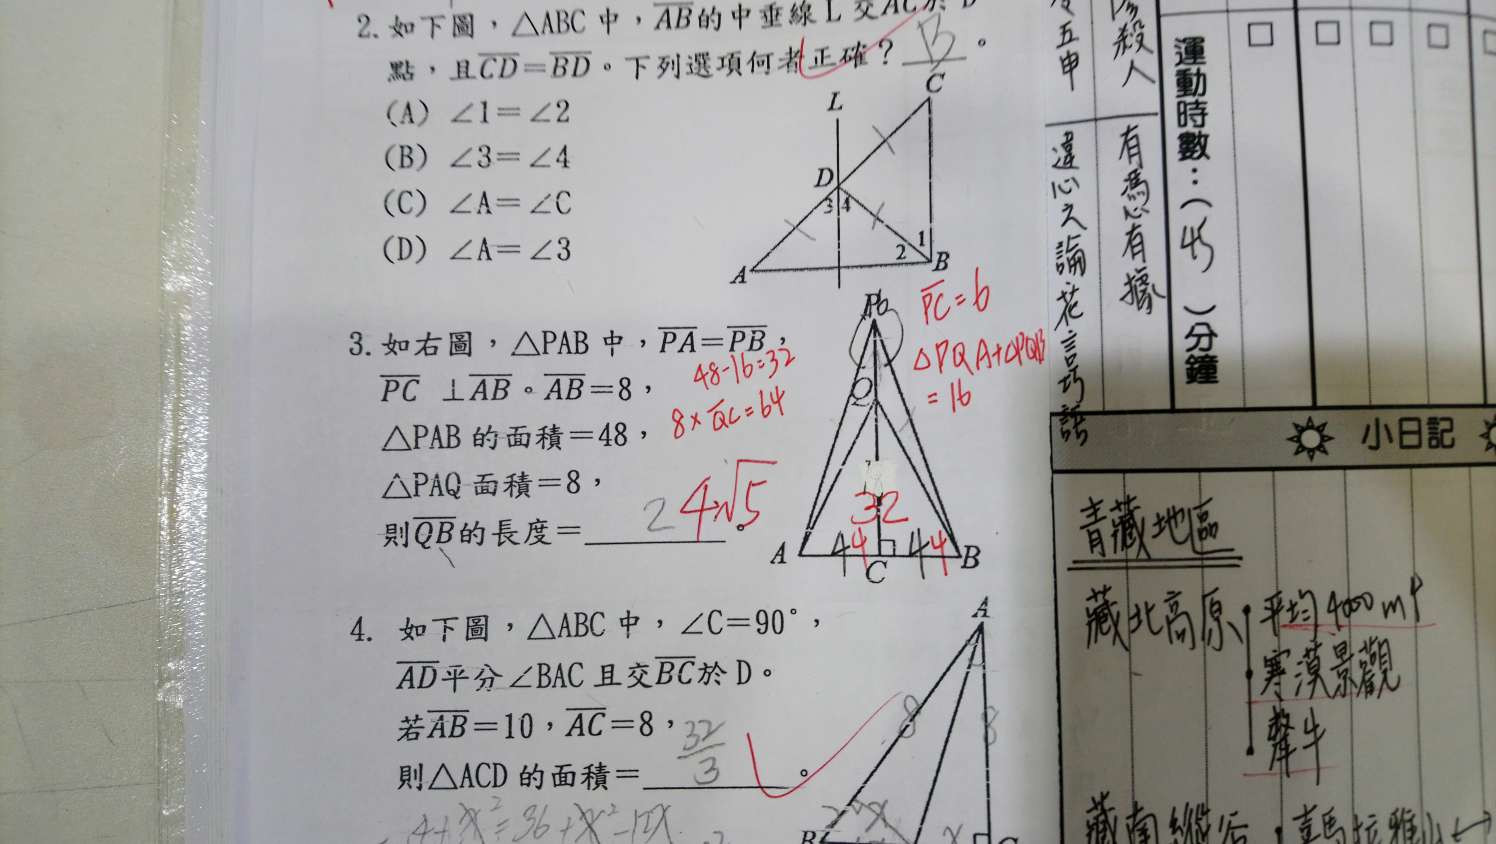 2. 如下圖，△ABC 中，AB的中垂線 L 交AC於 D
點，且CD=BD。下列選項何者正確？ B 。
(A) ∠1=∠2
(B) ∠3=∠4
(C) ∠A=∠C
(D) ∠A=∠3
L
C
D
3 4
2 1
A
B
3. 如右圖，△PAB 中，PA=PB，
PC ⊥AB。AB=8，
△PAB 的面積=48，
△PAQ 面積=8，
則QB的長度= 2 4√5 。
48-16=32
8×QC=64
PC=6
△PQA+△PQB
=16
P
Q
32
A
4 4
4 4
C
B
4. 如下圖，△ABC 中，∠C=90°，
AD平分∠BAC 且交BC於 D。
若AB=10，AC=8，
則△ACD 的面積= 32/3 。
4+x²=36+x²-12x
A
8
8
x
B
C
五申
殺人
違心之論
花言巧語
有憑有據
運動時數：( 45 )分鐘
小日記
青藏地區
藏北高原
平均4000m↑
寒漠景觀
犛牛
藏南縱谷
喜馬拉雅山